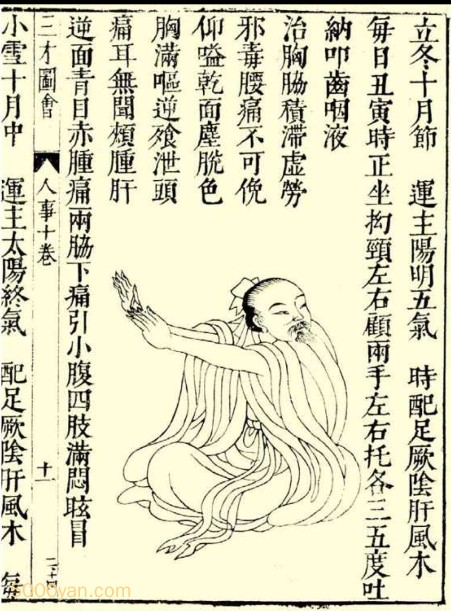 立冬十月節　運主陽明五氣　時配足厥陰肝風木
每日丑寅時正坐拗頸左右顧兩手左右托各三五度吐
納叩齒咽液
治胸脇積滯虛勞
邪毒腰痛不可俛
仰嗌乾面塵脫色
胸滿嘔逆飱泄頭
痛耳無聞頰腫肝
逆面青目赤腫痛兩脇下痛引小腹四肢滿悶眩冒
三才圖會　人事十卷　十一
小雪十月中　運主太陽終氣　配足厥陰肝風木　每